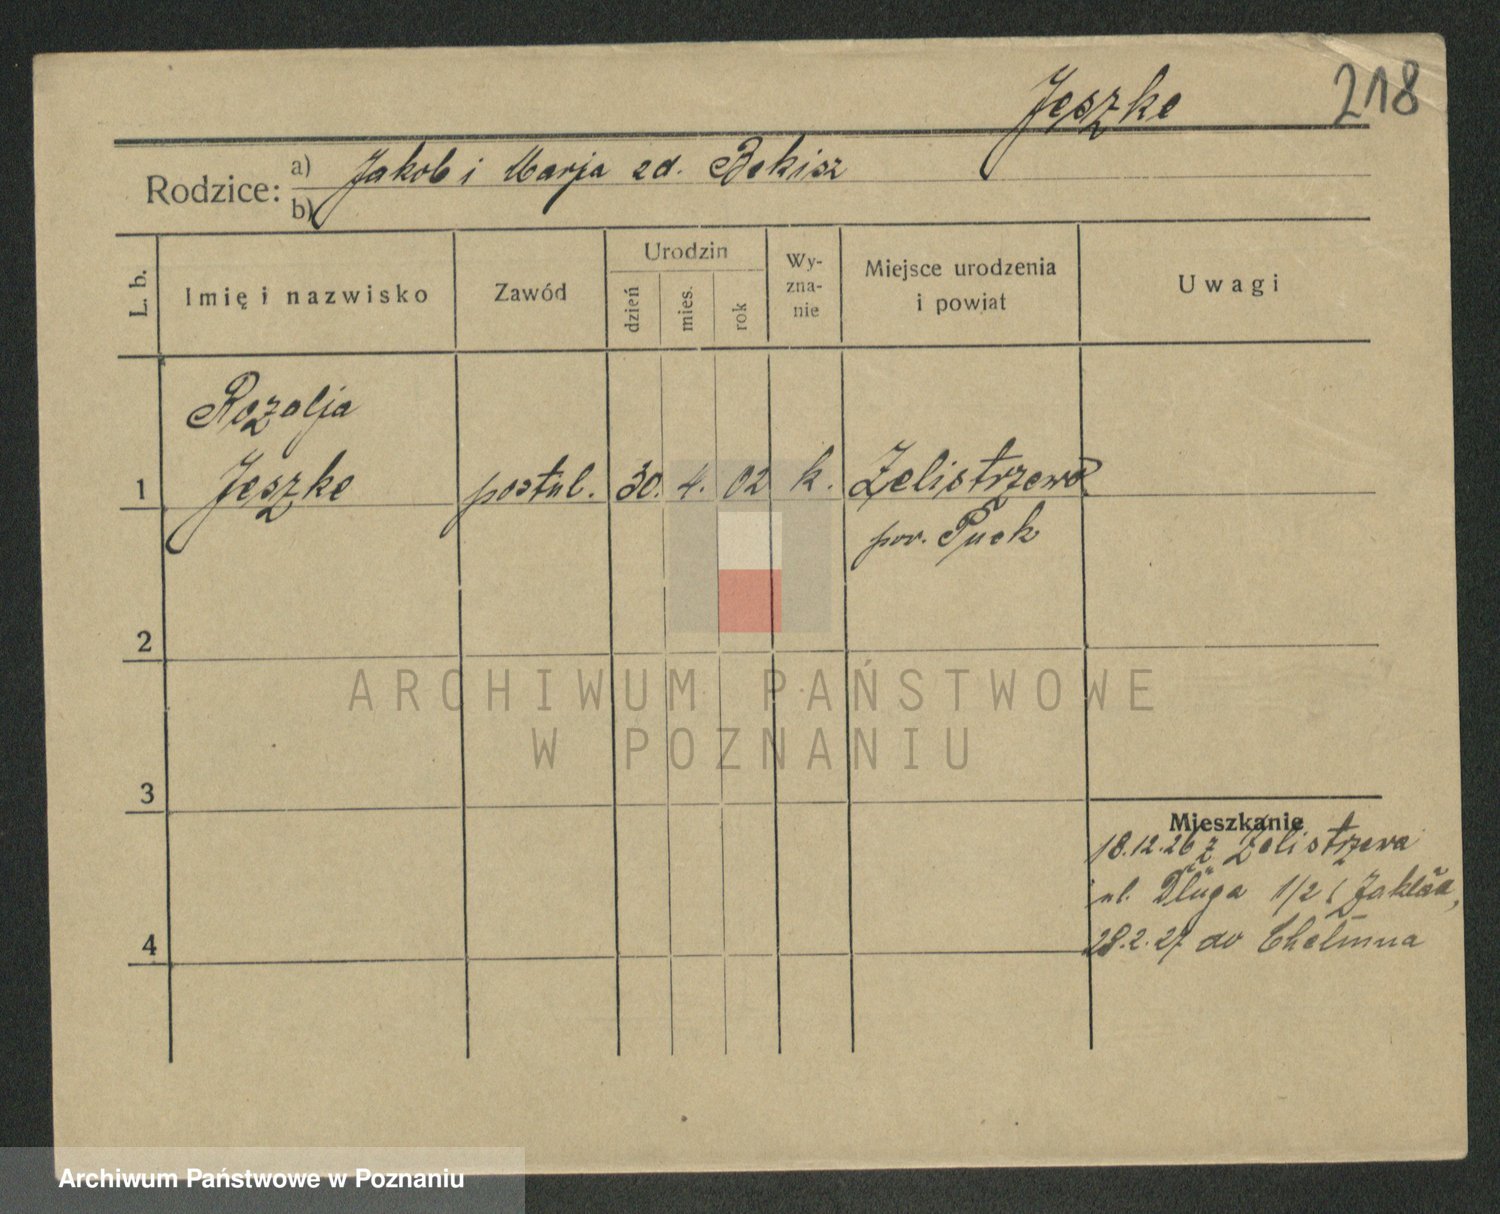 Jeszke
218
Rodzice:
a) Jakob i Marja zd. Bekisz
b)
L. b.
Imię i nazwisko
Zawód
Urodzin
dzień
mies.
rok
Wy-
zna-
nie
Miejsce urodzenia
i powiat
Uwagi
Rozalja
1 Jeszke postul. 30. 4. 02 k. Zelistrzewo
pow. Puck
2
3
4
Mieszkanie
18.12.26 z Zelistrzewa
ul. Długa 1/2 (Zakład,
28.2.27 do Chełmna
ARCHIWUM PAŃSTWOWE
W POZNANIU
Archiwum Państwowe w Poznaniu